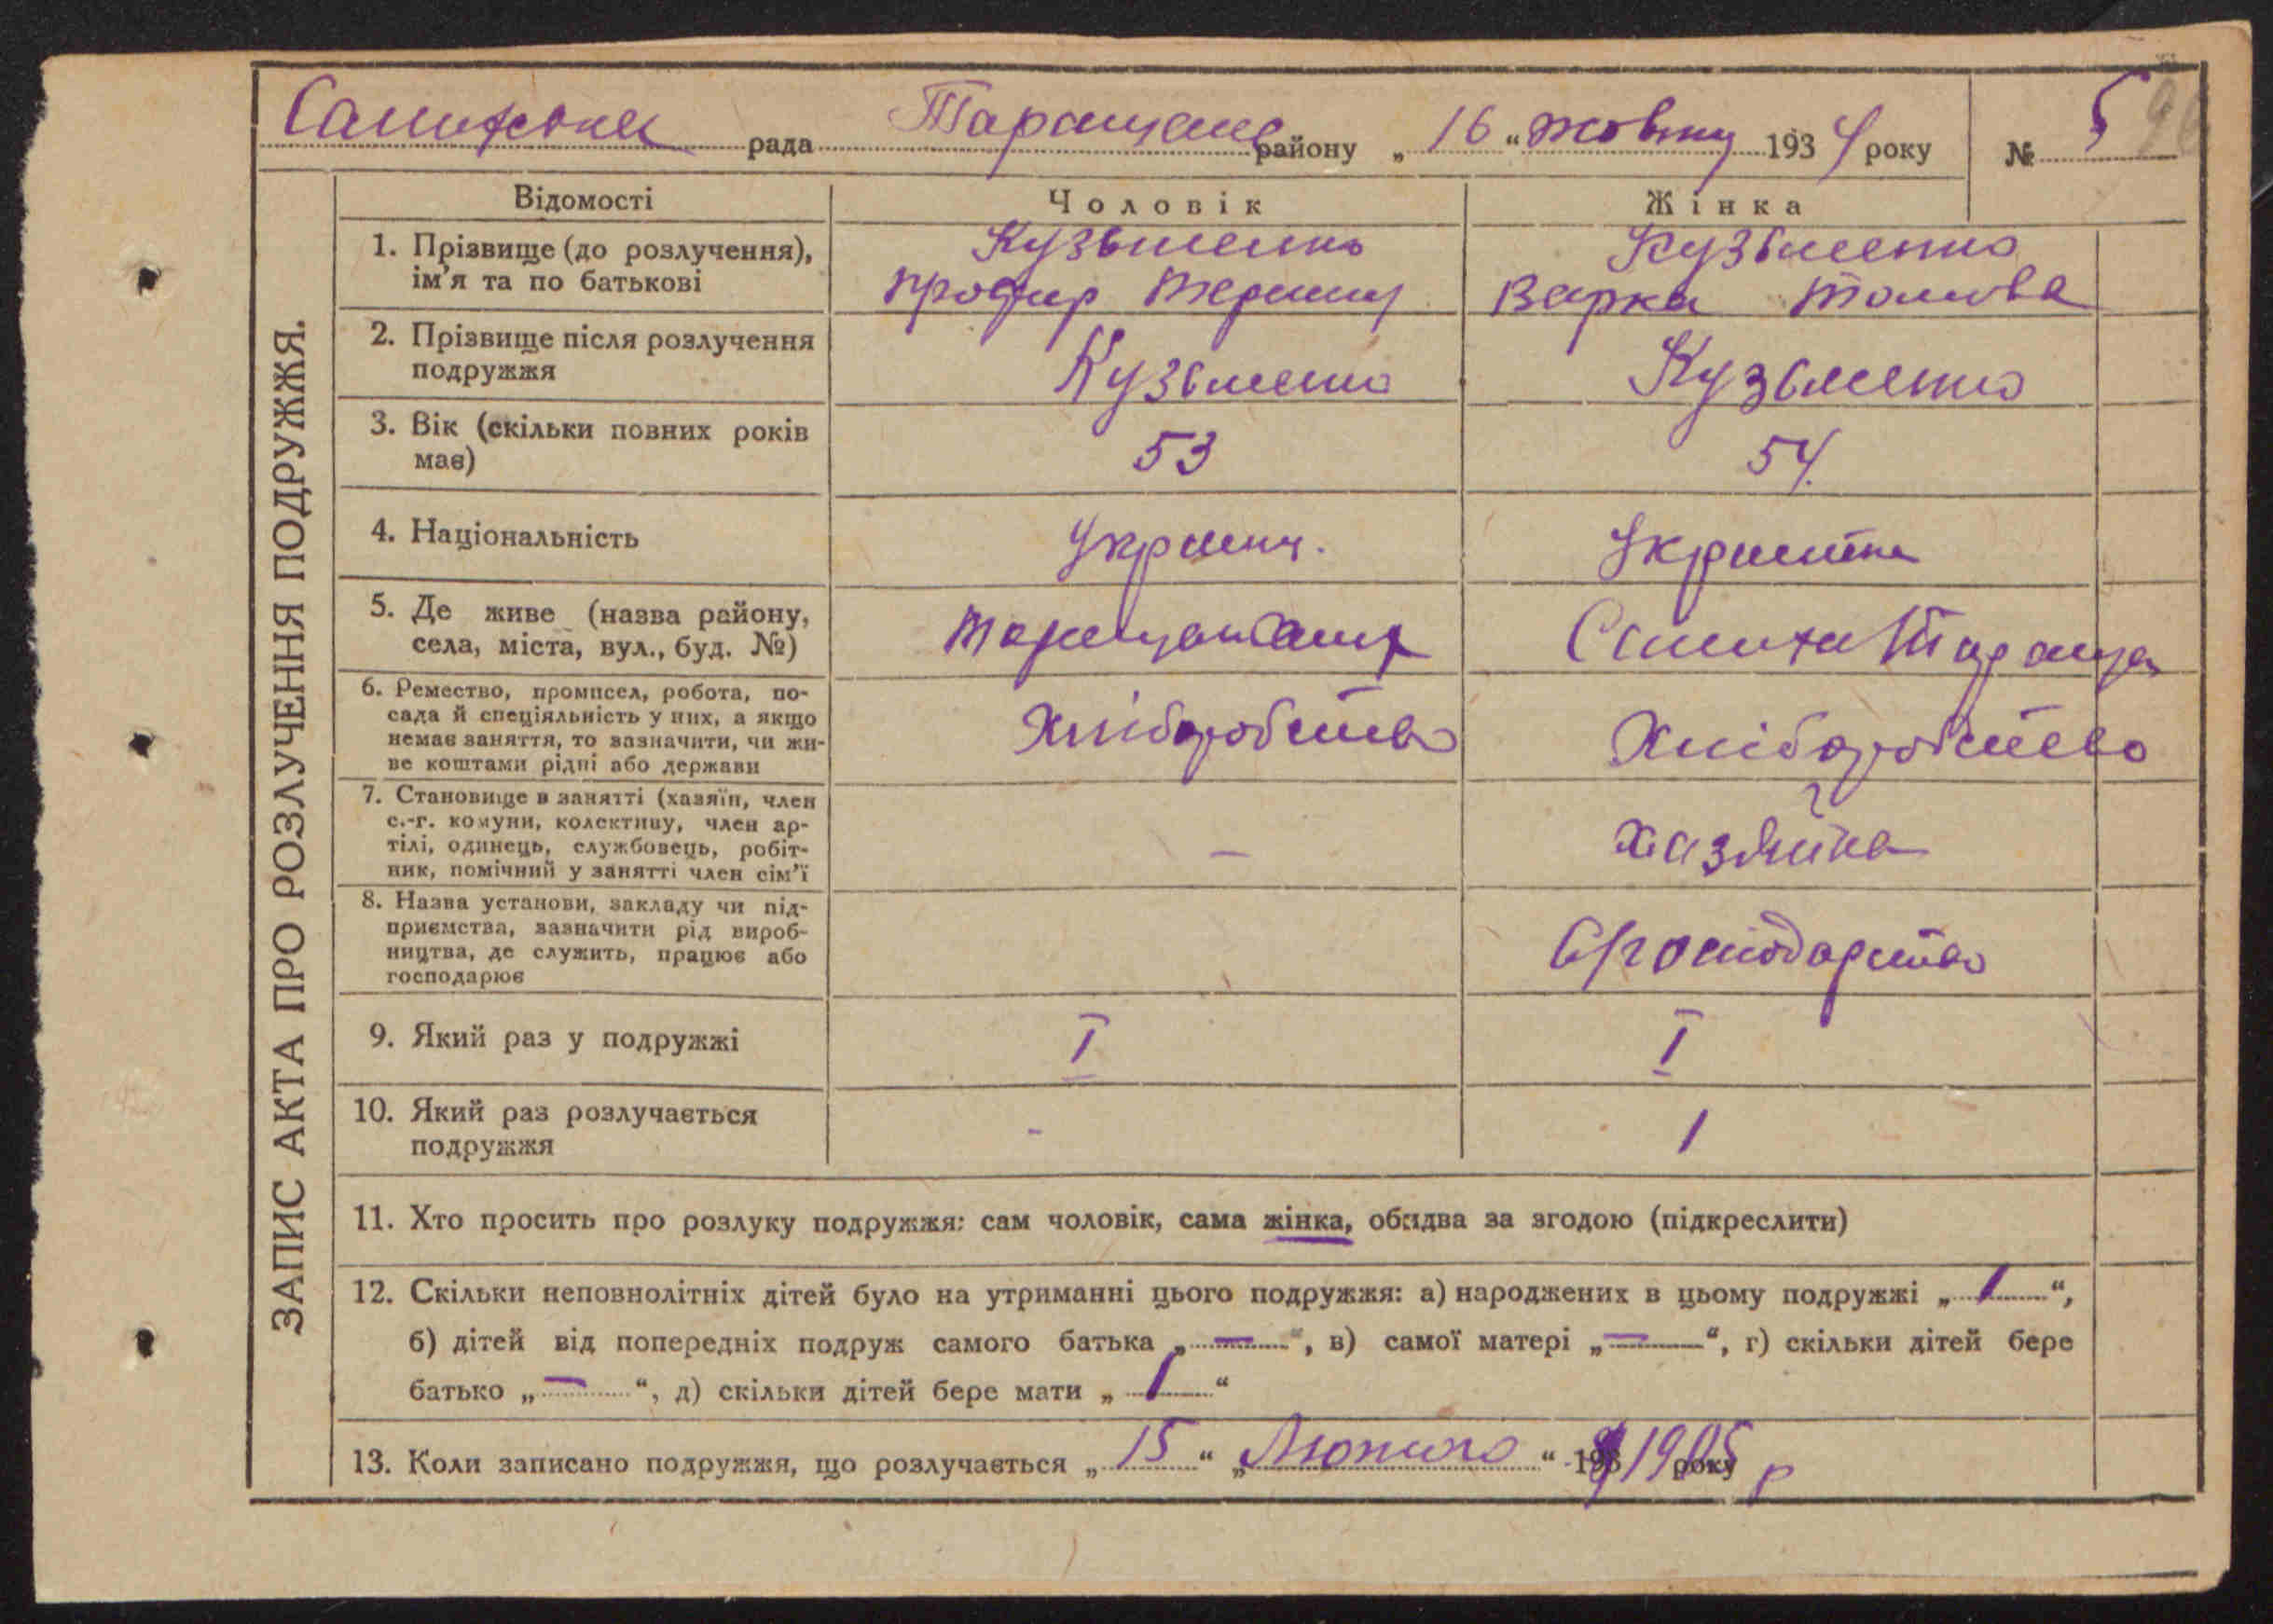 рада Таращане району „ 16 “ жовтну 1934 року № 5
ЗАПИС АКТА ПРО РОЗЛУЧЕННЯ ПОДРУЖЖЯ.
Відомості Чоловік Жінка
1. Прізвище (до розлучення), Кузьменко Кузьменко
ім'я та по батькові Варка
2. Прізвище після розлучення
подружжя Кузьменко Кузьменко
3. Вік (скільки повних років
має) 53 54
4. Національність
5. Де живе (назва району,
села, міста, вул., буд. №)
6. Ремество, промисел, робота, по-
сада й спеціяльність у них, а якщо
немає заняття, то зазначити, чи жи- Хліборобство Хліборобство
ве коштами рідні або держави
7. Становище в занятті (хазяїн, член
с.-г. комуни, колективу, член ар-
тілі, одинець, службовець, робіт- — хазяйка
ник, помічний у занятті член сім'ї
8. Назва установи, закладу чи під-
приємства, зазначити рід вироб-
ництва, де служить, працює або
господарює
9. Який раз у подружжі I I
10. Який раз розлучається - 1
подружжя
11. Хто просить про розлуку подружжя: сам чоловік, сама жінка, обидва за згодою (підкреслити)
12. Скільки неповнолітніх дітей було на утриманні цього подружжя: а) народжених в цьому подружжі „ 1 “,
б) дітей від попередніх подруж самого батька „ — “, в) самої матері „ — “, г) скільки дітей бере
батько „ — “, д) скільки дітей бере мати „ 1 “
13. Коли записано подружжя, що розлучається „ 15 “ „ Лютого “ 193 року 1905 р